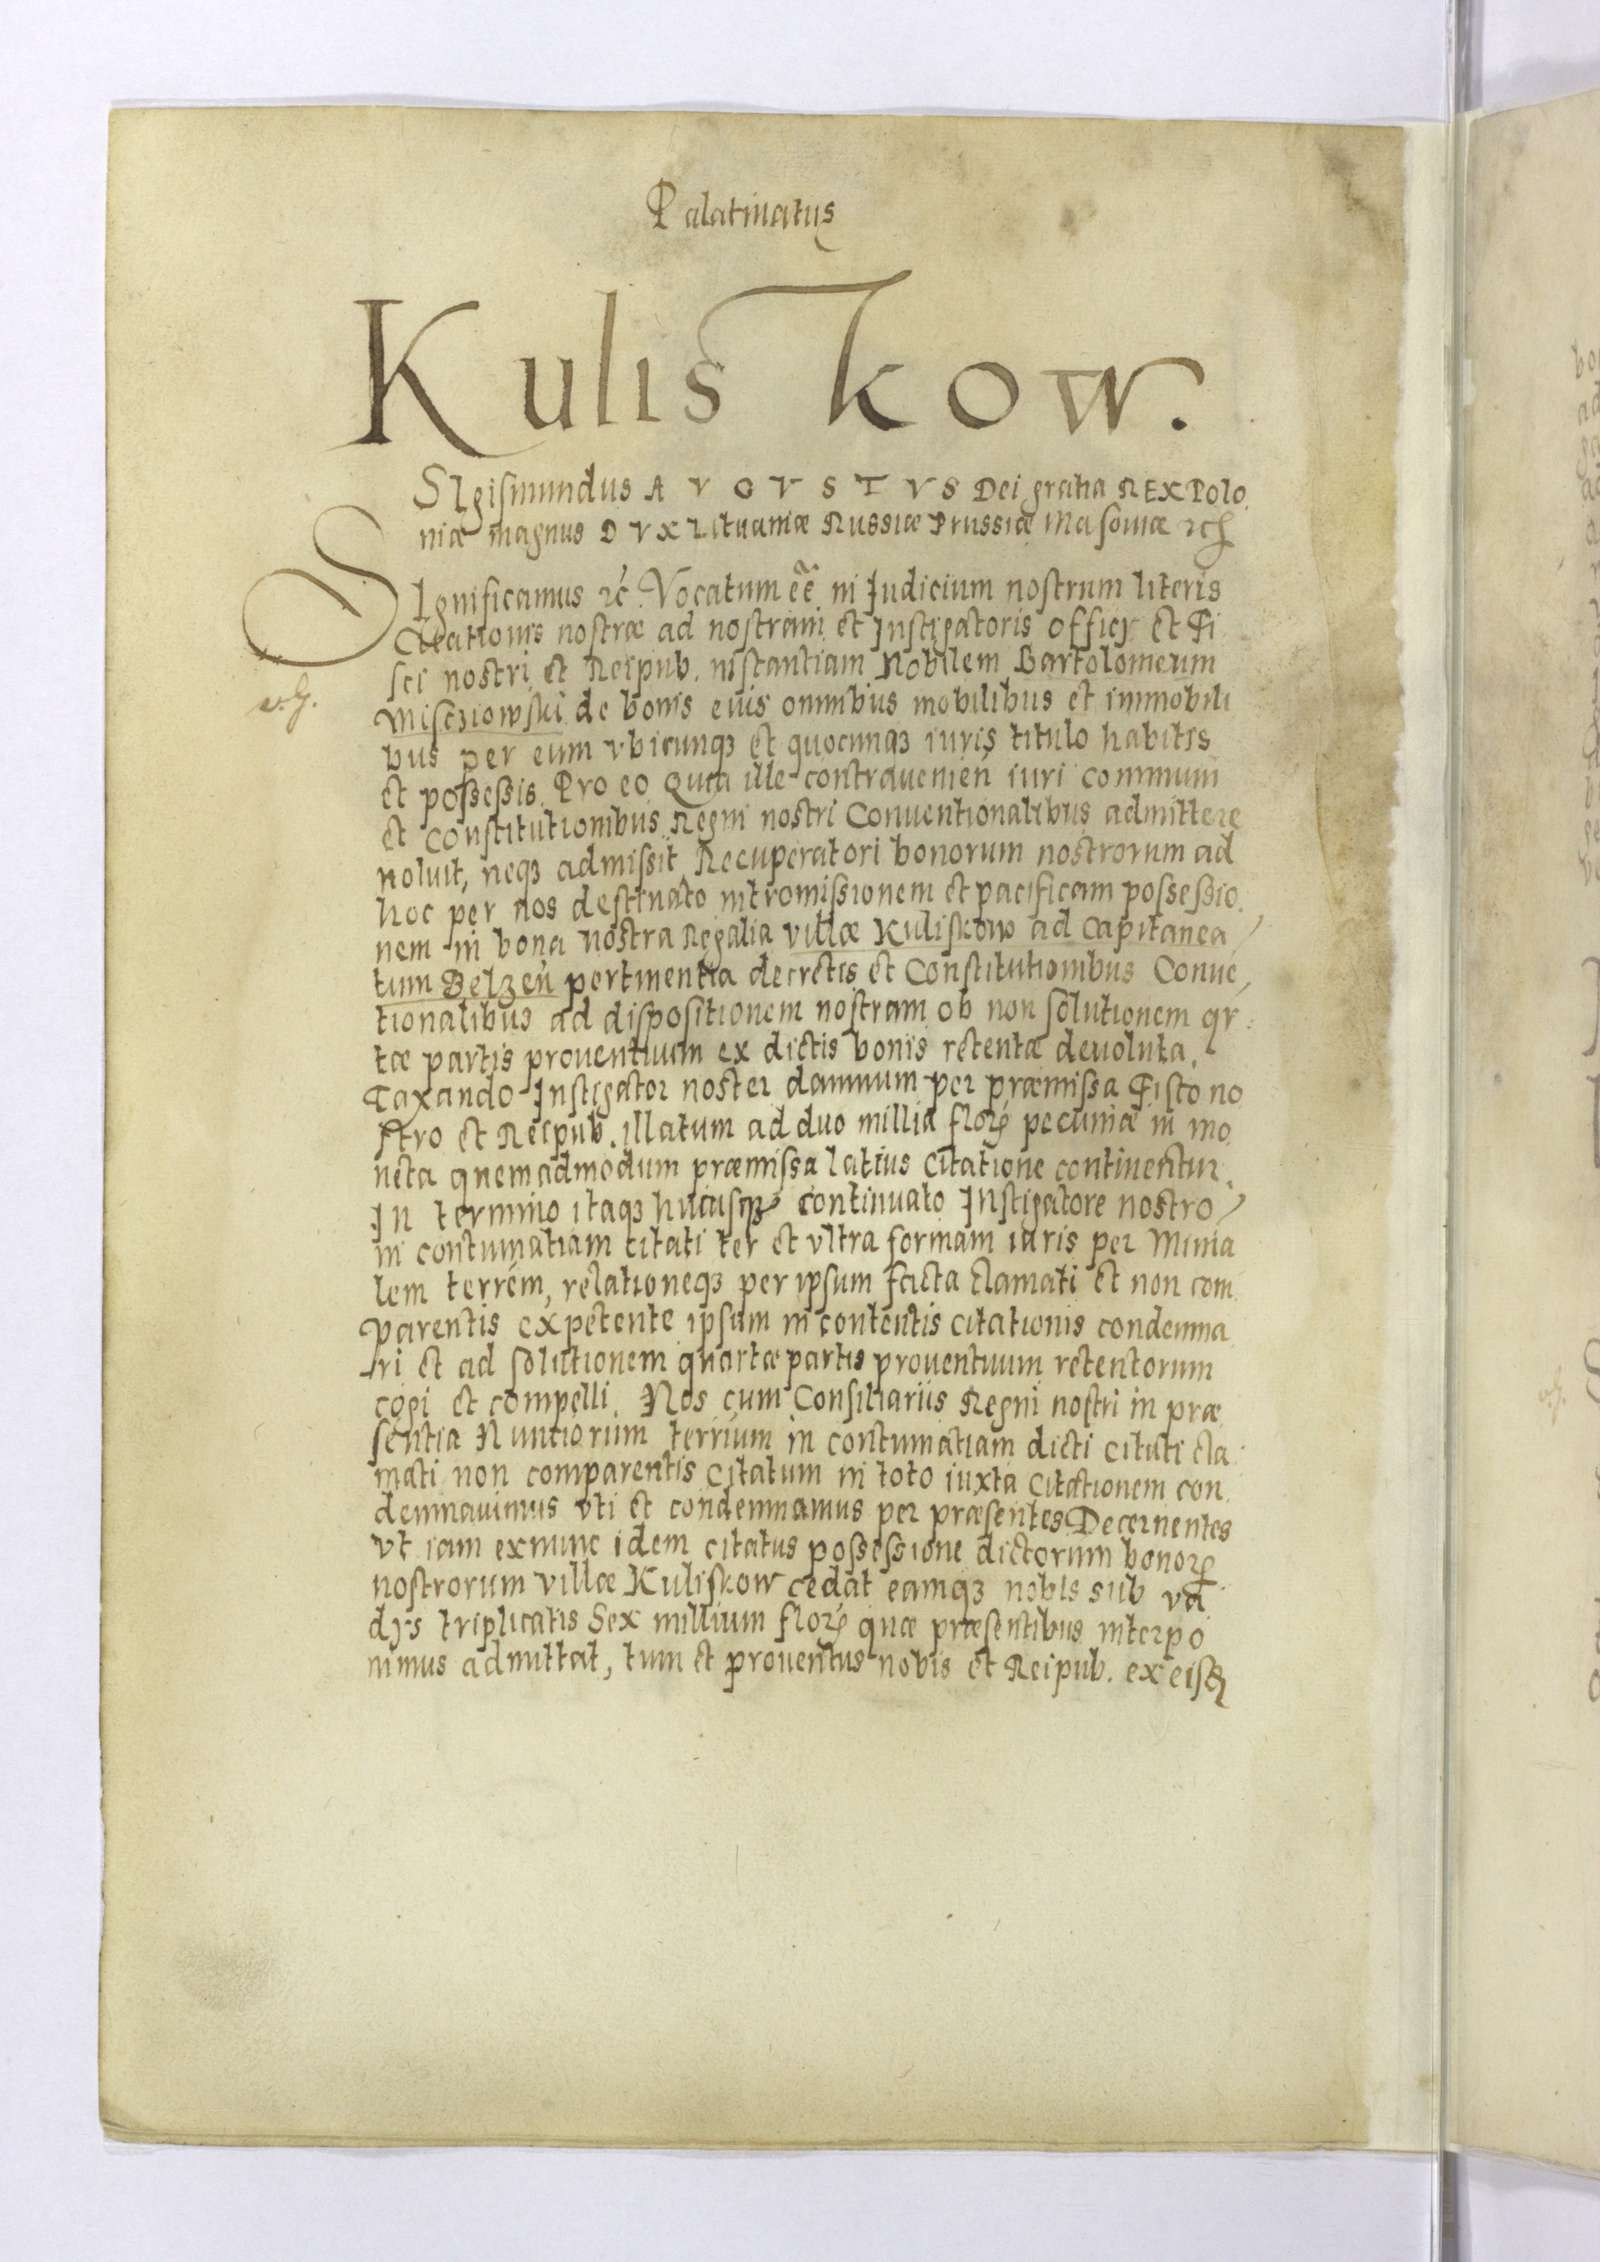 Palatinatus
Kulis kow.
SIgismundus AVGVSTVS Dei gratia REX Polo
niæ magnus DVX Lituaniæ Russiæ Prussiæ Masoviæ ꝛcꝭ
SIgnificamus ꝛc̃. Vocatum eẽ in Iudicium nostrum literis
Citationis nostræ ad nostram et Instigatoris officij et Fi
sci nostri et Reipub. instantiam Nobilem Bartolomeum
Miscziowski de bonis eius omnibus mobilibus et immobili
bus per eum vbicunqꝫ et quocunqꝫ iuris titulo habitis
et possessis. Pro eo Quia ille contravenień iuri communi
et constitutionibus Regni nostri Conventionalibus admittere
noluit, neqꝫ admissit Recuperatori bonorum nostrorum ad
hoc per nos destinato intromissionem et pacificam possessio
nem in bona nostra Regalia villæ Kuliskow ad Capitanea
tum Belzeń pertinentia decretis et Constitutionibus Convē
tionalibus ad dispositionem nostram ob non solutionem qr
tæ partis proventuum ex dictis bonis retentæ devoluta.
Taxando Instigator noster damnum per præmissa Fisco no
stro et Reipub. illatum ad duo millia florꝭ pecuniæ in mo
neta quemadmodum præmissa latius citatione continentur.
In termino itaqꝫ hucusqꝫ continuato Instigatore nostro
in contumatiam citati ter et vltra formam iuris per Minia
lem terrem, relationeqꝫ per ipsum facta clamati et non com
parentis expetente ipsum in contentis citationis condemna
ri et ad solutionem quartæ partis proventuum retentorum
cogi et compelli. Nos cum Consiliariis Regni nostri in præ
sentia Nuntiorum terrium in contumatiam dicti citati cla
mati non comparentis citatum in toto iuxta citationem con
demnavimus vti et condemnamus per præsentes Decernentes
vt iam exnunc idem citatus possessione dictorum bonorꝭ
nostrorum villæ Kuliskow cedat eamqꝫ nobis sub va
dijs triplicatis Sex millium florꝭ quæ præsentibus interpo
nimus admittat, tum et proventus nobis et Reipub. ex eisꝫ